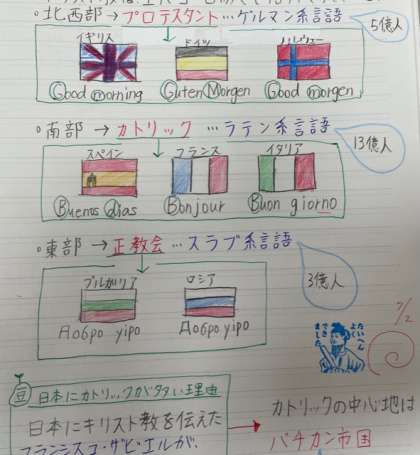 ・北、西部→プロテスタント…ゲルマン系言語
5億人
イギリス ドイツ ノルウェー
Good morning Guten Morgen Good morgen
・南部→カトリック…ラテン系言語
13億人
スペイン フランス イタリア
Buenos dias Bonjour Buon giorno
・東部→正教会…スラブ系言語
3億人
ブルガリア ロシア
Добро yípo Добро yípo
7/2
たいへん
よく
できました
豆 日本にカトリックが多い理由
日本にキリスト教を伝えた
フランシスコ・ザビエルが、
カトリックの中心地は
バチカン市国